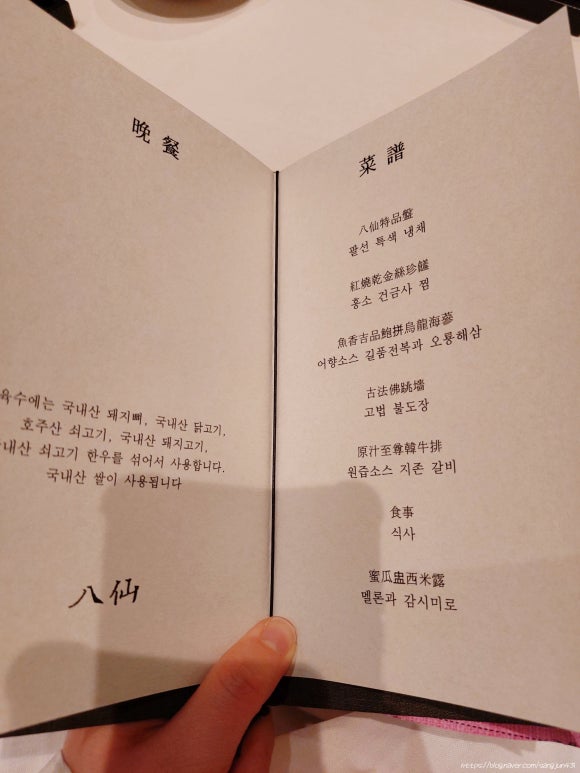 晩餐
육수에는 국내산 돼지뼈, 국내산 닭고기,
호주산 쇠고기, 국내산 돼지고기,
쇠고기 한우를 섞어서 사용합니다.
국내산 쌀이 사용됩니다
八仙
菜譜
八仙特品盤
팔선 특색 냉채
紅燒乾金絲珍饈
홍소 건금사 찜
魚香吉品鮑拼烏龍海蔘
어향소스 길품전복과 오룡해삼
古法佛跳墻
고법 불도장
原汁至尊韓牛排
원즙소스 지존 갈비
食事
식사
蜜瓜盅西米露
멜론과 감시미로